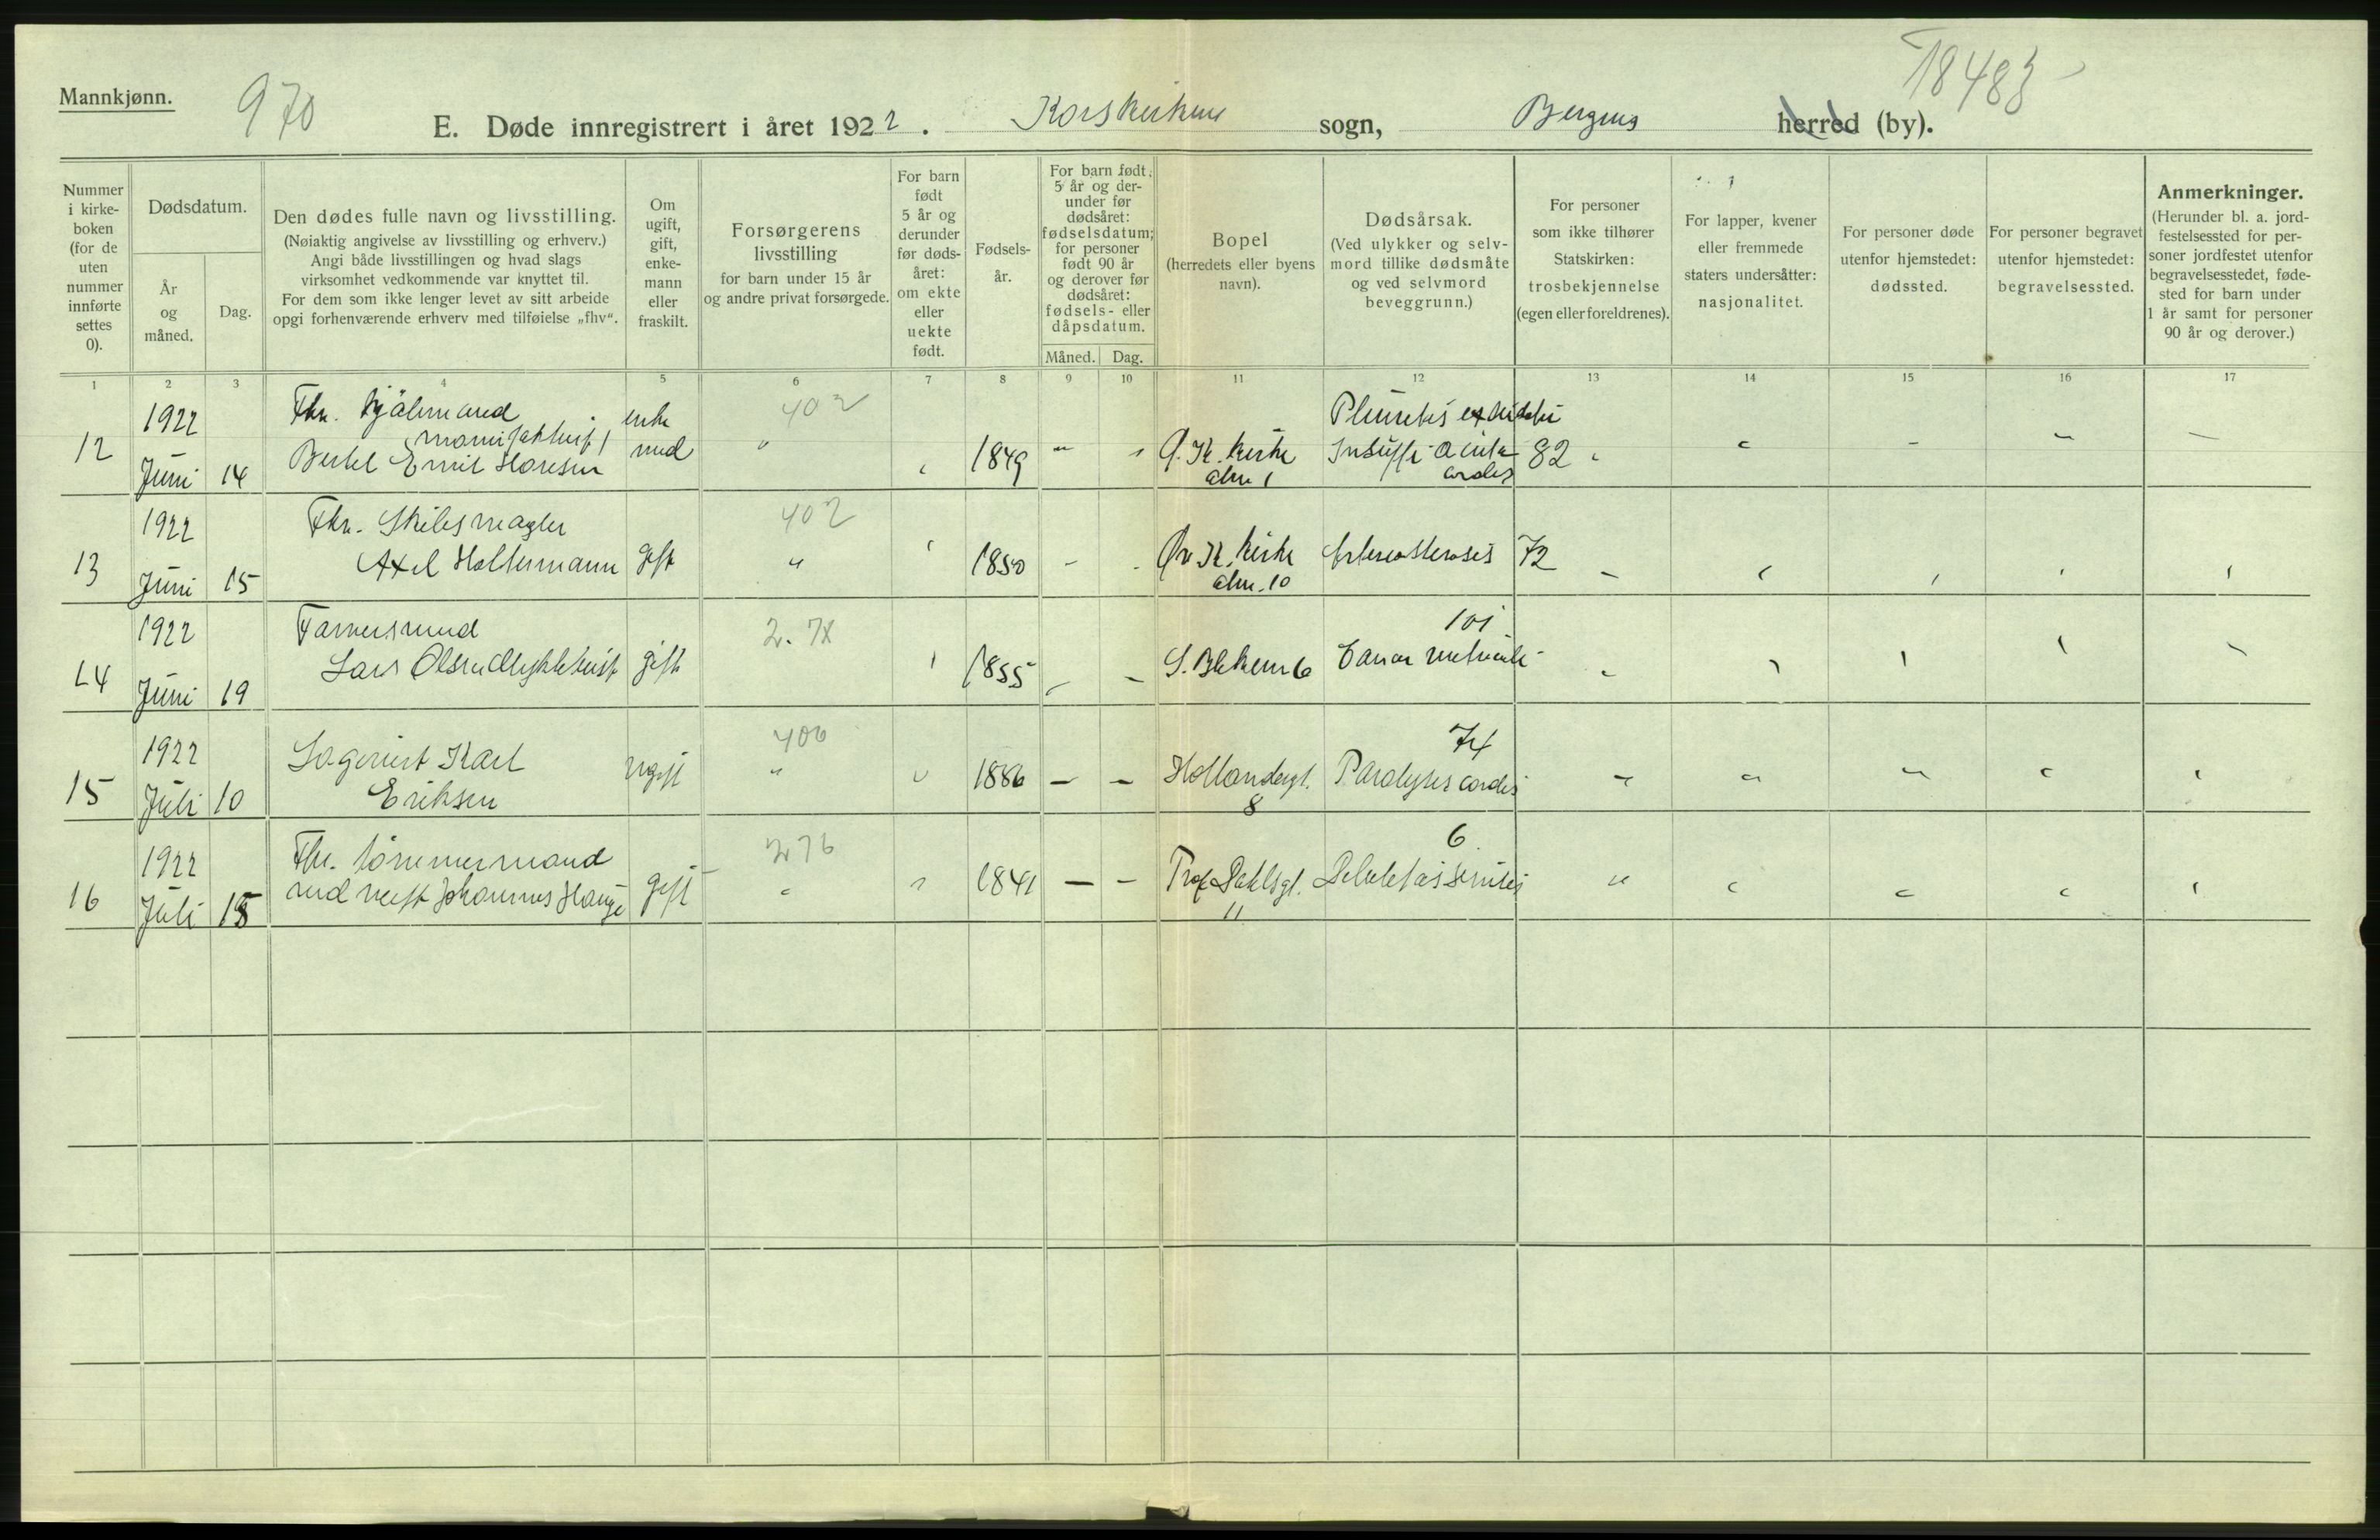 Mannkjønn.
970
18483
E. Døde innregistrert i året 1922. Korskirkens sogn, Bergens herred (by).
Nummer i kirkeboken (for de uten nummer innførte settes 0).
Dødsdatum.
År og måned.
Dag.
Den dødes fulle navn og livsstilling.
(Nøiaktig angivelse av livsstilling og erhverv.)
Angi både livsstillingen og hvad slags
virksomhet vedkommende var knyttet til.
For dem som ikke lenger levet av sitt arbeide
opgi forhenværende erhverv med tilføielse „fhv“.
Om ugift, gift, enkemann eller fraskilt.
Forsørgerens livsstilling
for barn under 15 år
og andre privat forsørgede.
For barn født 5 år og derunder før dødsåret: om ekte eller uekte født.
Fødselsår.
For barn født 5 år og derunder før dødsåret: fødselsdatum; for personer født 90 år og derover før dødsåret: fødsels- eller dåpsdatum.
Måned. Dag.
Bopel
(herredets eller byens navn).
Dødsårsak.
(Ved ulykker og selvmord tillike dødsmåte og ved selvmord beveggrunn.)
For personer som ikke tilhører Statskirken: trosbekjennelse (egen eller foreldrenes).
For lapper, kvener eller fremmede staters undersåtter: nasjonalitet.
For personer døde utenfor hjemstedet: dødssted.
For personer begravet utenfor hjemstedet: begravelsessted.
Anmerkninger.
(Herunder bl. a. jordfestelsessted for personer jordfestet utenfor begravelsesstedet, fødested for barn under 1 år samt for personer 90 år og derover.)
1 2 3 4 5 6 7 8 9 10 11 12 13 14 15 16 17
1922 Fhv. enke 402
12 Juni 14 Bertel Emil mand " 1849 - Ø. K. kirke alm 1 cordis 82
1922 Fhv. Skibsmægler 402
13 Juni 15 Axel Holtermann gift " 1850 - Øv. K. kirke alm. 10 72
1922 2. 78 101
14 Juni 19 Lars Olsen gift 1855 - - 6 Cancer
1922 406 74
15 Juli 10 Karl Eriksen ugift " 1886 - - Hollendergt. 8 Paralysis cordis
1922 Fhv. tømmermand 276 6
16 Juli 15 Johannes Hauge gift 1841 - - Prof Dahlsgt. 11 Debilitas senilis